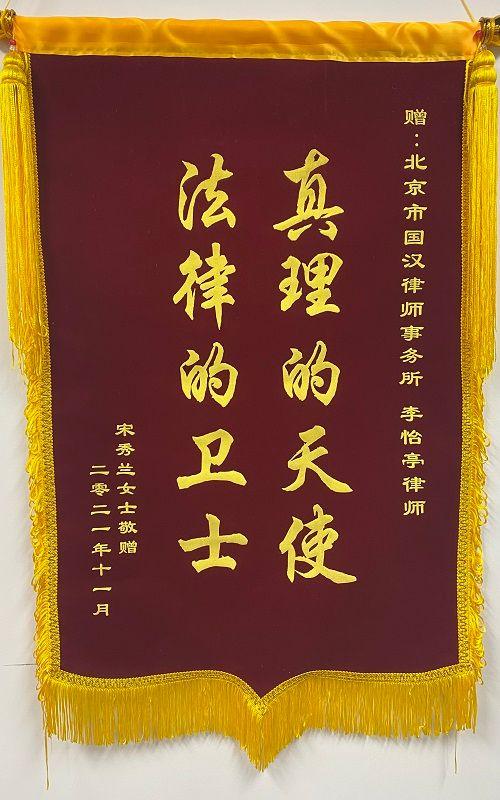 赠：北京市国汉律师事务所 李怡亭律师
真理的天使
法律的卫士
宋秀兰女士敬赠
二零二一年十一月